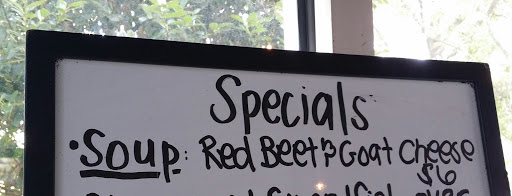 Specials
• Soup: Red Beet & Goat Cheese
$6